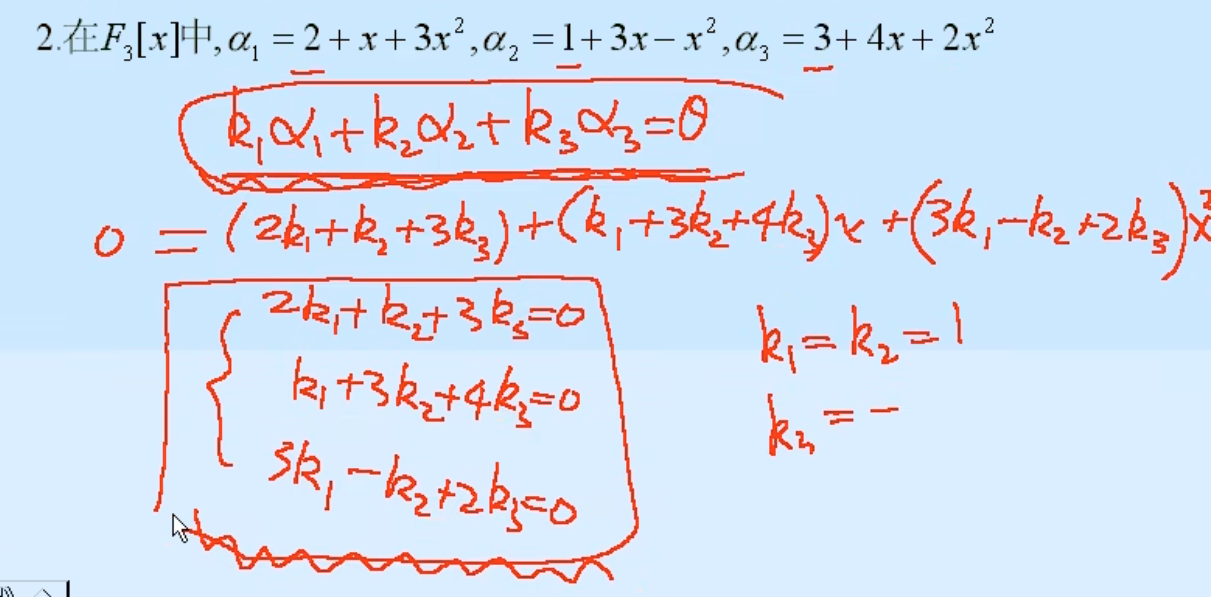 2.在F₃[x]中,α₁ = 2 + x + 3x²,α₂ = 1 + 3x − x²,α₃ = 3 + 4x + 2x²
k₁α₁+k₂α₂+k₃α₃=θ
0 = (2k₁+k₂+3k₃)+(k₁+3k₂+4k₃)x+(3k₁-k₂+2k₃)x²
2k₁+k₂+3k₃=0
k₁+3k₂+4k₃=0
3k₁-k₂+2k₃=0
k₁=k₂=1
k₃=-